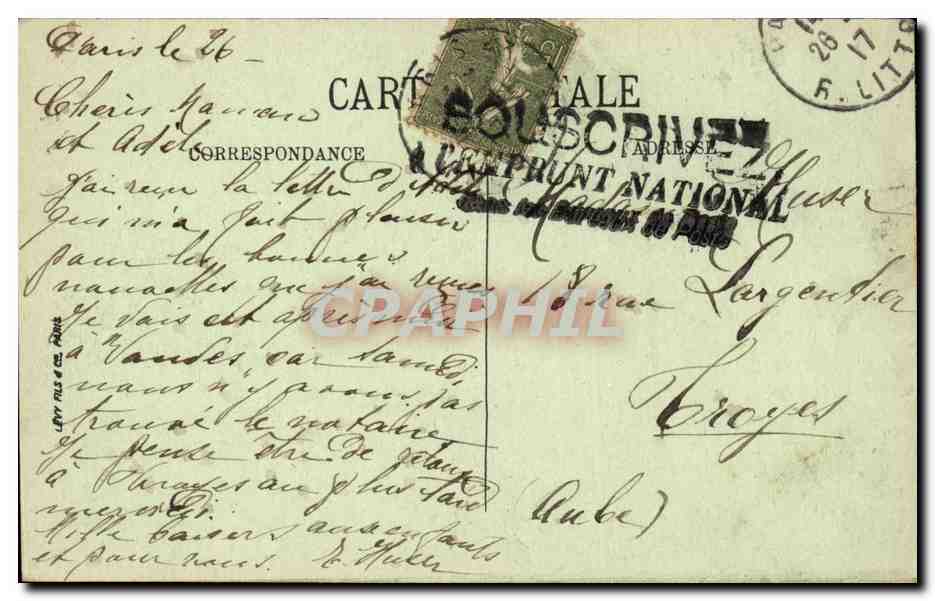 Paris le 26
Chèris Maman
et Adèle
CARTE POSTALE
CORRESPONDANCE
ADRESSE
j'ai reçu la lettre d'Adèle
qui m'a fait plaisir
pour les bonnes
nouvelles que j'ai reçues
Je vais cet après midi
à Vandes car samedi
nous n'y avons pas
trouvé le notaire
Je pense être de retour
à Troyes au plus tard
mercredi.
Mille baisers aux enfants
et pour vous. E. Huser
SOUSCRIVEZ
A L'EMPRUNT NATIONAL
dans les Bureaux de Poste
Madame Huser
18 rue Largentier
Troyes
(Aube)
26
17
R. LITT
LEVY FILS & Cie, PARIS
CPARPHIL